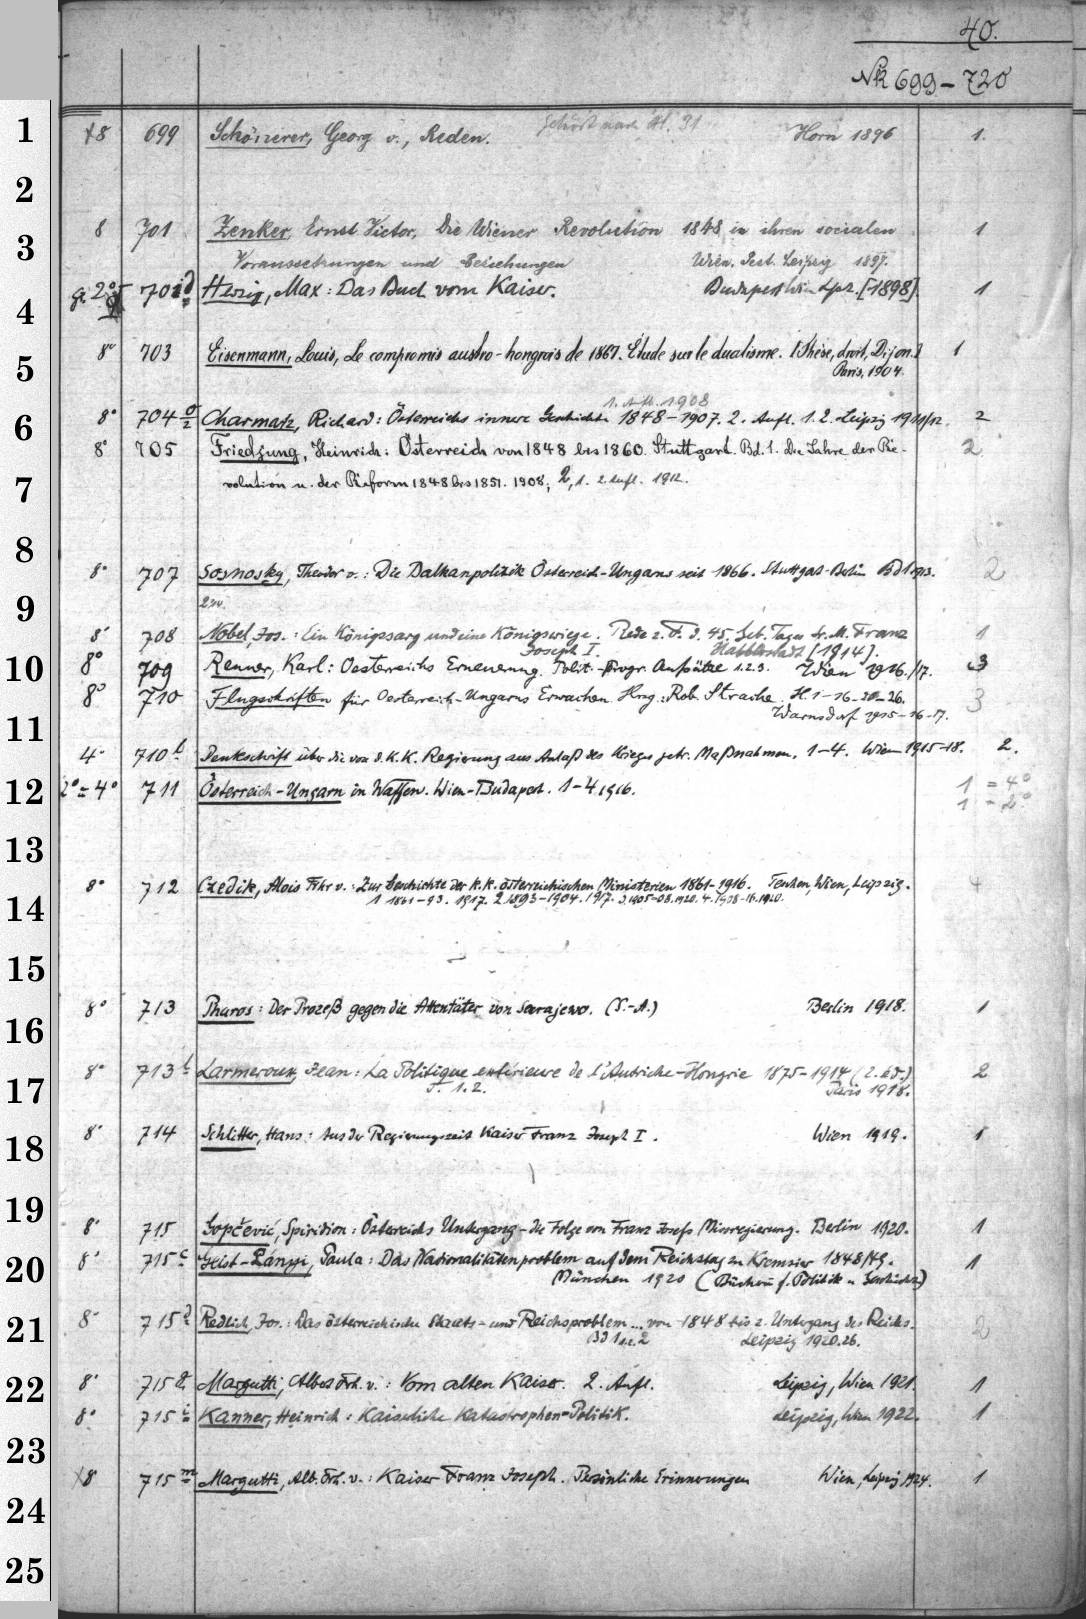 40.
№ 699 – 720
1
+8 699 Schönerer, Georg v., Reden. gehört nach Bl. 31 Horn 1896 1.
2
8 701 Zenker, Ernst Victor, Die Wiener Revolution 1848 in ihren socialen 1
3
Voraussetzungen und Beziehungen Wien. Pest. Leipzig 1897.
gr. 2° 701d Herzig, Max: Das Buch vom Kaiser. Budapest Wien Lpz. [1898]. 1
4
8° 703 Eisenmann, Louis, Le compromis austro-hongrois de 1867. Étude sur le dualisme. [Thèse, droit, Dijon.] 1
5
Paris, 1904.
1. Aufl. 1908
6
8° 704 Charmatz, Richard: Österreichs innere Geschichte 1848–1907. 2. Aufl. 1.2. Leipzig 1911/12. 2
8° 705 Friedjung, Heinrich: Österreich von 1848 bis 1860. Stuttgart. Bd. 1. Die Jahre der Re- 2
7
volution u. der Reform 1848 bis 1851. 1908; 2,1. 2. Aufl. 1912.
8
8° 707 Sosnosky, Theodor v.: Die Balkanpolitik Österreich-Ungarns seit 1866. Stuttgart-Berlin Bd 1 1913. 2
9
2 1914.
8° 708 Nobel, Jos.: Ein Königssarg und eine Königswiege. Rede z. F. d. 45. Geb. Tages Sr. M. Franz 1
Joseph I. Halberstadt [1914].
10
8° 709 Renner, Karl: Oesterreichs Erneuerung. Polit.-Progr. Aufsätze 1.2.3. Wien 1916./17. 3
8° 710 Flugschriften für Oesterreich-Ungarns Erwachen. Hrsg.: Rob. Strache. H. 1–16–20–26. 3
Warnsdorf 1915–16–17.
11
4° 710b Denkschrift über die von d. K.K. Regierung aus Anlaß des Krieges getr. Maßnahmen. 1–4. Wien 1915–18. 2.
12
2° = 4° 711 Österreich-Ungarn in Waffen. Wien-Budapest. 1–4 1916. 1 = 4°
1 = 2°
13
8° 712 Czedik, Alois Frhr v.: Zur Geschichte der K.K. österreichischen Ministerien 1861–1916. Teschen, Wien, Leipzig. 4
14
1 1861–93. 1917. 2 1893–1904. 1917. 3. 1905–08. 1920. 4. 1908–16. 1920.
15
8° 713 Pharos: Der Prozeß gegen die Attentäter von Sarajewo. (S.-A.) Berlin 1918. 1
16
8° 713b Larmeroux, Jean: La Politique extérieure de l'Autriche-Hongrie 1875–1914 (2. éd.) 2
17
T. 1.2. Paris 1918.
8° 714 Schlitter, Hans: Aus der Regierungszeit Kaiser Franz Joseph I. Wien 1919. 1
18
19
8° 715 Gopčević, Spiridion: Österreichs Untergang – die Folge von Franz Josefs Missregierung. Berlin 1920. 1
8° 715c Geist-Lányi, Paula: Das Nationalitätenproblem auf dem Reichstag zu Kremsier 1848/49. 1
20
München 1920 (Bücherei f. Politik u. Geschichte)
8° 715d Redlich, Jos.: Das österreichische Staats- und Reichsproblem ... von 1848 bis z. Untergang des Reichs. 2
21
Bd 1 u. 2 Leipzig 1920.26.
22
8° 715g Margutti, Albert Frh. v.: Vom alten Kaiser. 2. Aufl. Leipzig, Wien 1921. 1
8° 715i Kanner, Heinrich: Kaiserliche Katastrophen-Politik. Leipzig, Wien 1922. 1
23
+8° 715m Margutti, Alb. Frh. v.: Kaiser Franz Joseph. Persönliche Erinnerungen Wien, Leipzig 1924. 1
24
25